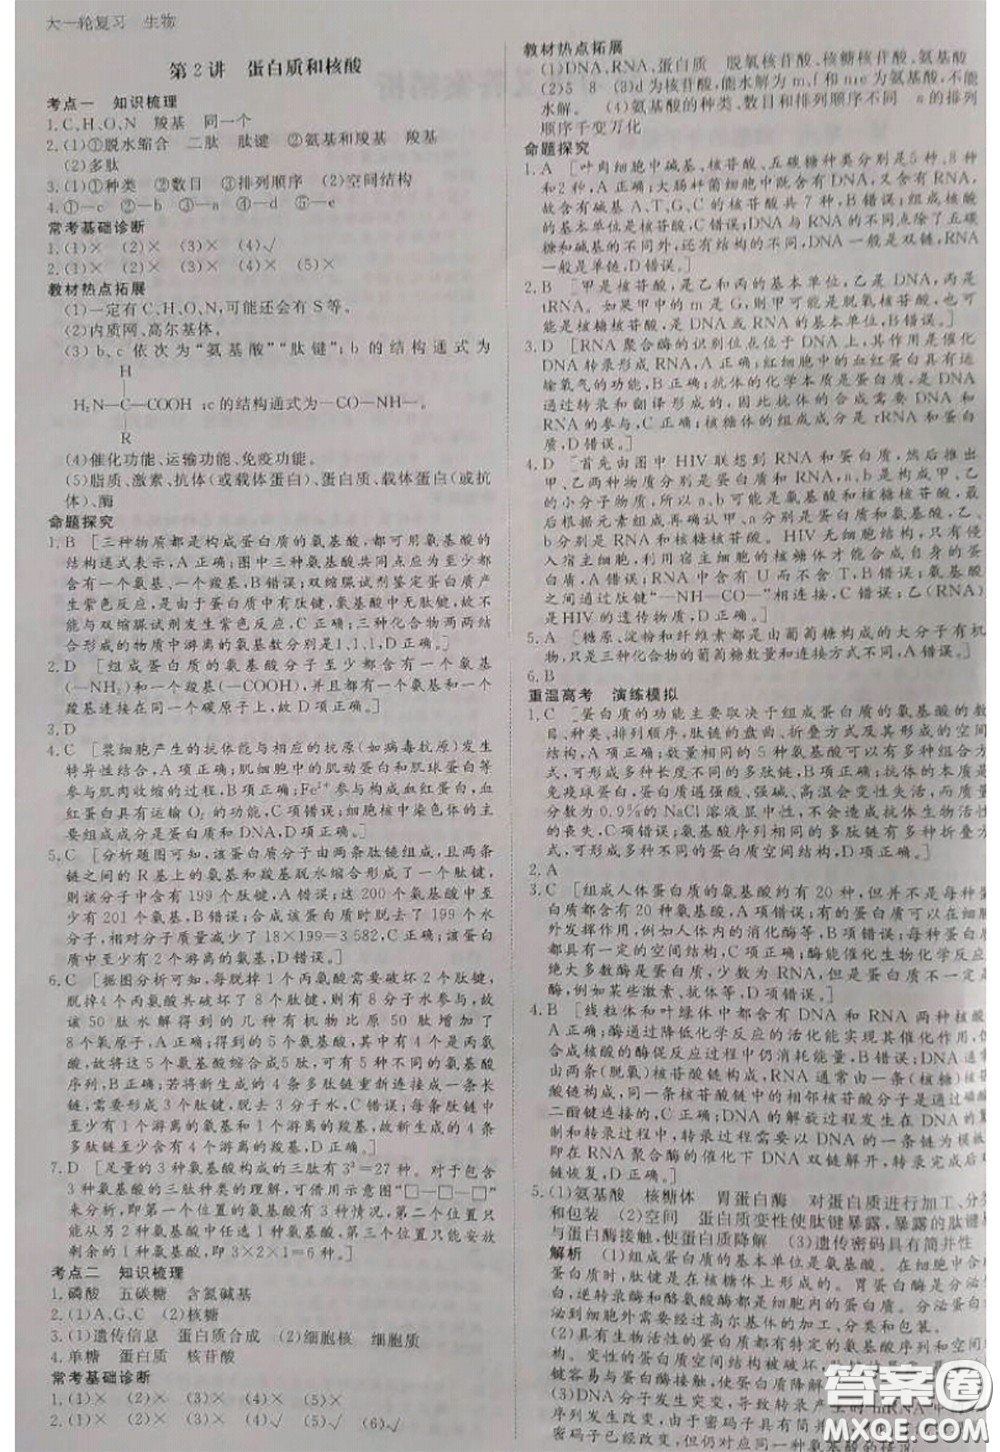 大一轮复习　生物
第2讲　蛋白质和核酸
考点一　知识梳理
1.C、H、O、N　羧基　同一个
2.(1)①脱水缩合　二肽　肽键　②氨基和羧基　羧基
(2)多肽
3.(1)①种类　②数目　③排列顺序　(2)空间结构
4.①—c　②—b　③—a　④—d　⑤—e
常考基础诊断
1.(1)×　(2)×　(3)×　(4)√
2.(1)×　(2)×　(3)×　(4)×　(5)×
教材热点拓展
(1)一定有C、H、O、N,可能还会有S等。
(2)内质网、高尔基体。
(3)b、c依次为“氨基酸”“肽键”;b的结构通式为
H
H₂N—C—COOH ;c的结构通式为—CO—NH—。
R
(4)催化功能、运输功能、免疫功能。
(5)脂质、激素、抗体(或载体蛋白)、蛋白质、载体蛋白(或抗体)、酶
命题探究
1.B　[三种物质都是构成蛋白质的氨基酸,都可用氨基酸的
结构通式表示,A正确;图中三种氨基酸共同点应为至少
含有一个氨基、一个羧基,B错误;双缩脲试剂鉴定蛋白质产
生紫色反应,是由于蛋白质中有肽键,氨基酸中无肽键,故不
能与双缩脲试剂发生紫色反应,C正确;三种化合物两两结
合形成的物质中游离的氨基数分别是1、1、1,D正确。]
2.D　[组成蛋白质的氨基酸至少都含有一个氨基
(—NH₂)和一个羧基(—COOH),并且都有一个氨基和一个
羧基连接在同一个碳原子上,故D项正确。]
3.D
4.C　[浆细胞产生的抗体能与相应的抗原(如病毒抗原)发生
特异性结合,A项正确;肌细胞中的肌动蛋白和肌球蛋白等
参与肌肉收缩的过程,B项正确;Fe²⁺参与构成血红蛋白,血
红蛋白具有运输O₂的功能,C项错误;细胞核中染色体的主
要组成成分是蛋白质和DNA,D项正确。]
5.C　[分析题图可知,该蛋白质分子由两条肽链组成,且两条
链之间的R基上的氨基和羧基脱水缩合形成了一个肽键,
则该分子中含有199个肽键,A错误;这200个氨基酸中至
少有201个氨基,B错误;合成该蛋白质时脱去了199个水
分子,相对分子质量减少了18×199=3 582,C正确;该蛋白
质中至少有2个游离的氨基,D错误。]
6.C　[据图分析可知,每脱掉1个丙氨酸需要破坏2个肽键,
脱掉4个丙氨酸共破坏了8个肽键,有8个水分子参与,故
该50肽水解得到的几种有机物比原50肽增加了
8个氧原子,A正确;新生成的5个氨基酸中,4个是丙氨酸,
故由这5个氨基酸缩合成5肽,可以有5种不同的氨基酸
序列,B正确;若将新生成的4条多肽链重新连接成一条长
链,需形成3个肽键,脱去3个水分子,C错误;每条肽链中
至少含有1个游离的氨基和1个游离的羧基,故新生成的4
条多肽链至少含有4个游离的羧基,D正确。]
7.D　[足量的3种氨基酸构成的三肽有3³=27种。对于包含
3种氨基酸的三肽种类的理解,可借助示意图“□—□—□”
来分析,即第一个位置的氨基酸有3种情况,第二个位置只
能从另2种氨基酸中任选1种氨基酸,第三个位置只能安放
剩余的1种氨基酸,即3×2×1=6种。]
考点二　知识梳理
1.磷酸　五碳糖　含氮碱基
2.(1)A、G、C　(2)核糖
3.(1)遗传信息　蛋白质合成　(2)细胞核　细胞质
4.单糖　蛋白质　核苷酸
常考基础诊断
1.(1)×　(2)×　(3)×　(4)√
2.(1)×　(2)×　(3)√　(4)×　(5)√　(6)√
教材热点拓展
(1)DNA、RNA、蛋白质　脱氧核苷酸、核糖核苷酸、氨基酸
(2)5　8　(3)d为核苷酸,能水解为m、f和n;e为氨基酸,不能
水解。　(4)氨基酸的种类、数目和排列顺序不同　n的排列
顺序千变万化
命题探究
1.A　[叶肉细胞中碱基、核苷酸、五碳糖种类分别是5种、8种
和2种,A正确;大肠杆菌细胞中既含有DNA,又含有RNA,
故含有碱基A、T、G、C的核苷酸共7种,B错误;组成核酸
的基本单位是核苷酸,C错误;DNA与RNA的不同点除了五碳
糖和碱基的不同外,还有结构的不同,DNA一般是双链,RNA
一般是单链,D错误。]
2.B　[甲是核苷酸,是乙和丙的基本单位,乙是DNA,丙是
tRNA。如果甲中的m是G,则甲可能是脱氧核苷酸,也可
能是核糖核苷酸,是DNA或RNA的基本单位,B错误。]
3.D　[RNA聚合酶的识别位点位于DNA上,其作用是催化
DNA转录形成RNA,A正确;红细胞中的血红蛋白具有运
输氧气的功能,B正确;抗体的化学本质是蛋白质,是DNA
通过转录和翻译形成的,因此抗体的合成需要DNA和
RNA的参与,C正确;核糖体的组成成分是rRNA和蛋白
质,D错误。]
4.D　[首先由图中HIV联想到RNA和蛋白质,然后推出
甲、乙两种物质分别是蛋白质和RNA,a、b是组成甲、乙
的小分子物质,所以a、b可能是氨基酸和核糖核苷酸,最
后根据元素组成再确认甲、a分别是蛋白质和氨基酸,乙、
b分别是RNA和核糖核苷酸。HIV无细胞结构,只有侵
入宿主细胞,利用宿主细胞的核糖体才能合成自身的蛋白
质,A错误;RNA中含有U而不含有T,B错误;氨基酸
之间通过肽键“—NH—CO—”相连接,C错误;乙(RNA)
是HIV的遗传物质,D正确。]
5.A　[糖原、淀粉和纤维素都是由葡萄糖构成的大分子有机
物,只是三种化合物的葡萄糖数量和连接方式不同,A错误。]
6.B
重温高考　演练模拟
1.C　[蛋白质的功能主要取决于组成蛋白质的氨基酸的数
目、种类、排列顺序,肽链的盘曲、折叠方式及其形成的空间
结构,A项正确;数量相同的5种氨基酸可以有多种组合
方式,可形成长度不同的多肽链,B项正确;抗体的本质是
免疫球蛋白,蛋白质遇强酸、强碱、高温会变性失活,而质量
分数为0.9%的NaCl溶液显中性,不会造成抗体生物活性
的丧失,C项错误;氨基酸序列相同的多肽链有多种折叠方
式,可形成不同的蛋白质空间结构,D项正确。]
2.A
3.C　[组成人体蛋白质的氨基酸约有20种,但并不是每种蛋
白质都含有20种氨基酸,A项错误;有的蛋白质可在细胞
外发挥作用,例如人体内的消化酶等,B项错误;蛋白质
都具有一定的空间结构,C项正确;酶能催化生物化学反应,
绝大多数酶是蛋白质,少数为RNA,但蛋白质不一定是
酶,例如某些激素、抗体等,D项错误。]
4.B　[线粒体和叶绿体中都含有DNA和RNA两种核酸,
A正确;酶通过降低化学反应的活化能实现其催化作用,但
合成核酸的酶促反应过程中仍消耗能量,B错误;DNA通常
由两条(脱氧)核苷酸链构成,RNA通常由一条(核糖)核苷
酸链构成,同一条核苷酸链中的相邻核苷酸分子是通过磷酸
二酯键连接的,C正确;DNA的解旋过程发生在DNA的复
制和转录过程中,转录过程需要以DNA的一条链为模板,
在RNA聚合酶的催化下DNA双链解旋,转录后DNA双
链恢复,D正确。]
5.(1)氨基酸　核糖体　胃蛋白酶　对蛋白质进行加工、分类
和包装　(2)空间　蛋白质变性使肽键暴露,暴露的肽键易
与蛋白酶接触,使蛋白质降解　(3)遗传密码具有简并性
解析　(1)组成蛋白质的基本单位是氨基酸。细胞中合成蛋白
质时,肽键是在核糖体上形成的。胃蛋白酶是分泌蛋
白,逆转录酶和酪氨酸酶都是细胞内的蛋白质。分泌蛋白在分
泌到细胞外的过程中需经过高尔基体的加工、分类和包装。
(2)具有生物活性的蛋白质都有特定的氨基酸序列和空间结
构。变性的蛋白质因空间结构被破坏,肽键暴露出来,更
容易与蛋白酶接触而被降解。
(3)DNA分子发生突变,导致转录产生的mRNA分
子发生改变,由于密码子具有简并性
答案圈
MXQE.COM